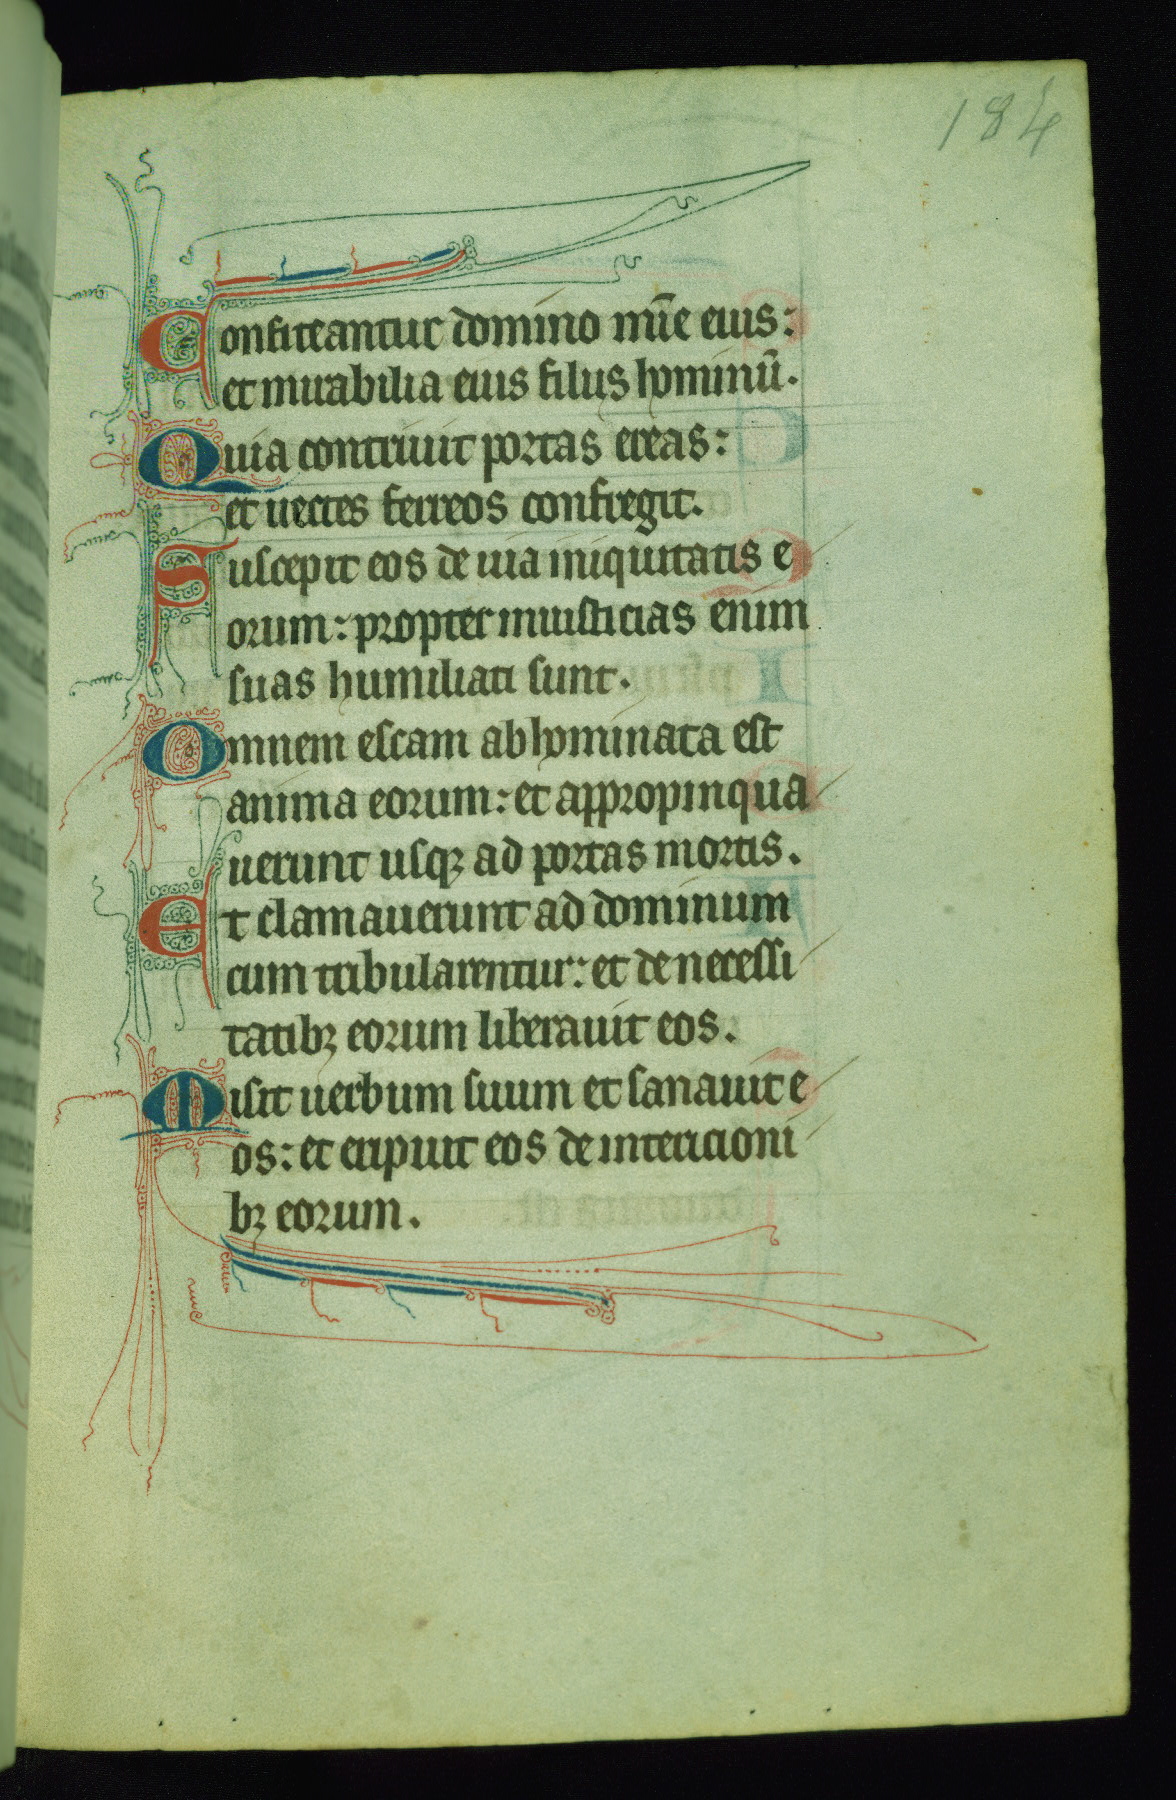 184
Confiteantur domino mīe eius:
et mirabilia eius filiis hominū.
Quia contriuit portas ereas:
et uectes ferreos confregit.
Suscepit eos de uia iniquitatis e
orum: propter iniusticias enim
suas humiliati sunt.
Omnem escam abhominata est
anima eorum: et appropinqua
uerunt usqꝫ ad portas mortis.
Et clamauerunt ad dominum
cum tribularentur: et de necessi
tatibꝫ eorum liberauit eos.
Misit uerbum suum et sanauit e
os: et eripuit eos de intericioni
bꝫ eorum.